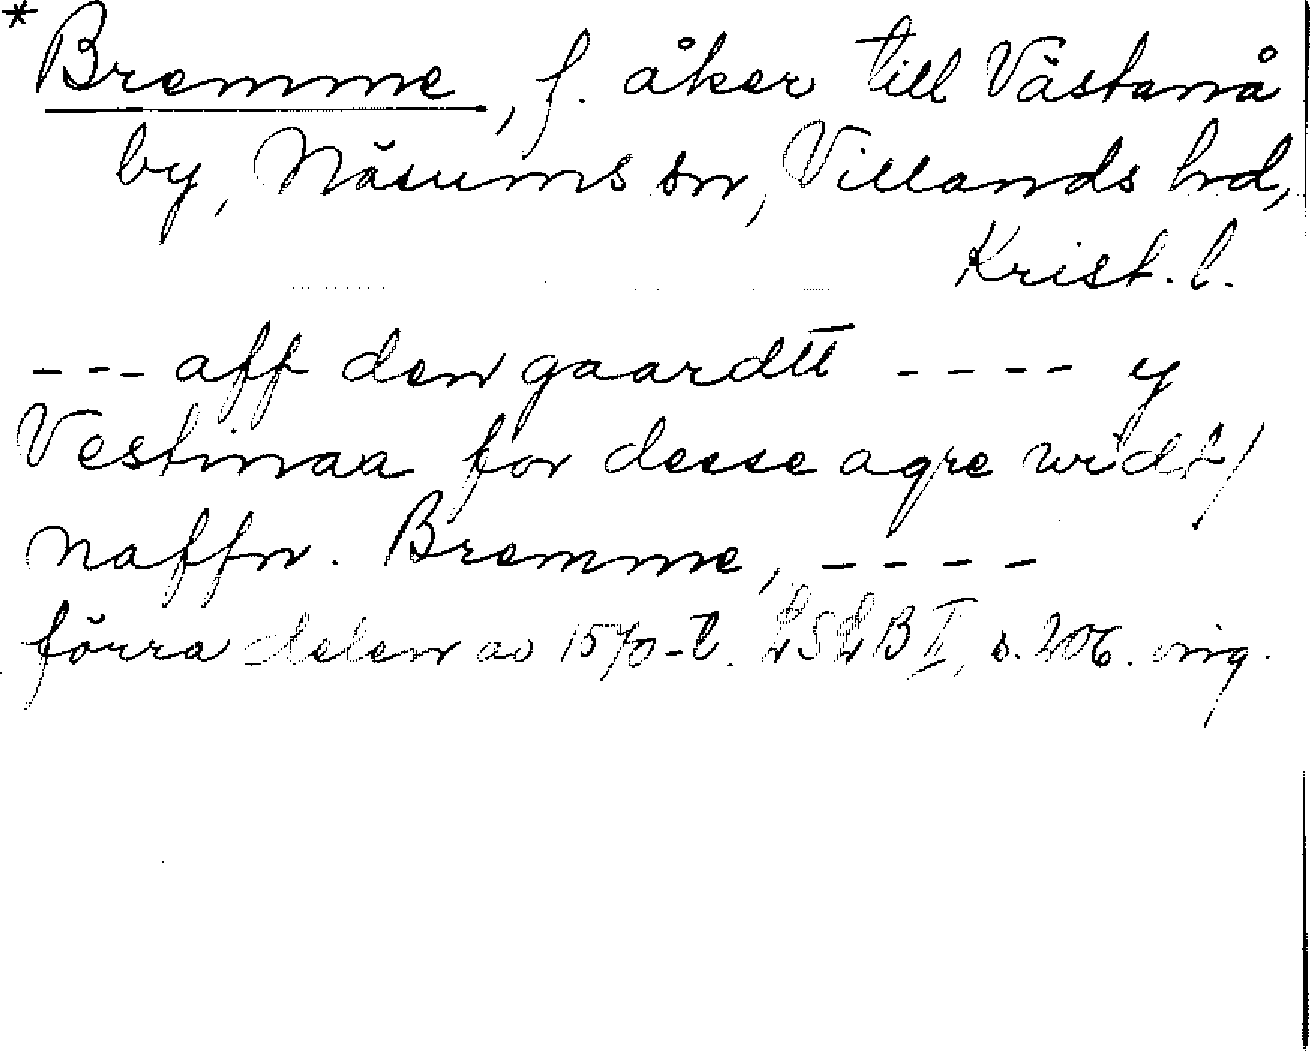 *Bremme, f. åker till Västanå
by, Näsums sn, Villands hrd,
Krist. l.
--- aff den gaardtt ---- y
Vestinaa for desse agre widt/
naffn. Bremme, ----
förra delen av 1570-t. LSLB II, s. 206. ing.